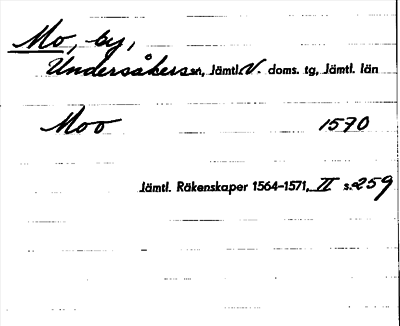 Mo, by,
Undersåkers sn, Jämtl. V. doms. tg, Jämtl. län
Moo 1570
Jämtl. Räkenskaper 1564-1571, II s. 259